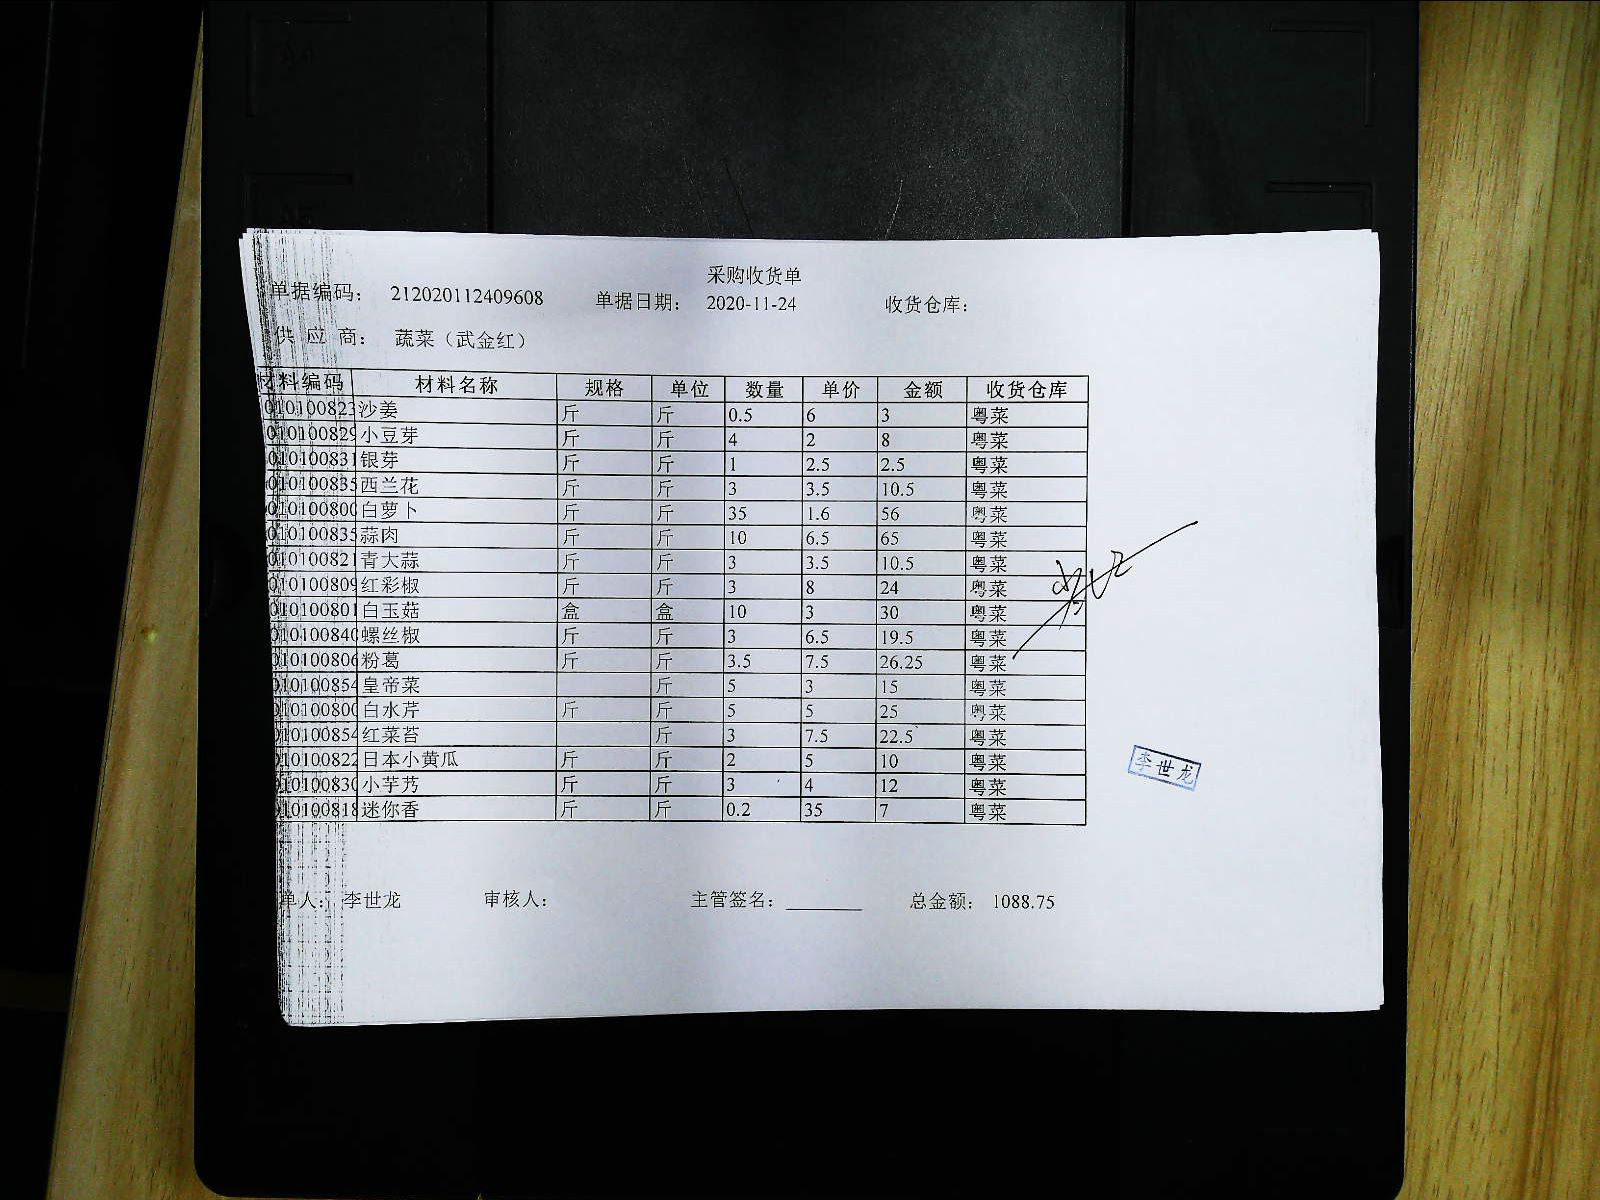 采购收货单
单据编码： 212020112409608 单据日期： 2020-11-24 收货仓库：
供 应 商： 蔬菜（武金红）
材料编码 材料名称 规格 单位 数量 单价 金额 收货仓库
010100823 沙姜 斤 斤 0.5 6 3 粤菜
010100829 小豆芽 斤 斤 4 2 8 粤菜
010100831 银芽 斤 斤 1 2.5 2.5 粤菜
010100835 西兰花 斤 斤 3 3.5 10.5 粤菜
010100800 白萝卜 斤 斤 35 1.6 56 粤菜
010100835 蒜肉 斤 斤 10 6.5 65 粤菜
010100821 青大蒜 斤 斤 3 3.5 10.5 粤菜
010100809 红彩椒 斤 斤 3 8 24 粤菜
010100801 白玉菇 盒 盒 10 3 30 粤菜
010100840 螺丝椒 斤 斤 3 6.5 19.5 粤菜
010100806 粉葛 斤 斤 3.5 7.5 26.25 粤菜
010100854 皇帝菜 斤 5 3 15 粤菜
010100800 白水芹 斤 斤 5 5 25 粤菜
010100854 红菜苔 斤 3 7.5 22.5 粤菜
010100822 日本小黄瓜 斤 斤 2 5 10 粤菜
010100830 小芋艿 斤 斤 3 4 12 粤菜
010100818 迷你香 斤 斤 0.2 35 7 粤菜
李世龙
单人： 李世龙 审核人： 主管签名： 总金额： 1088.75